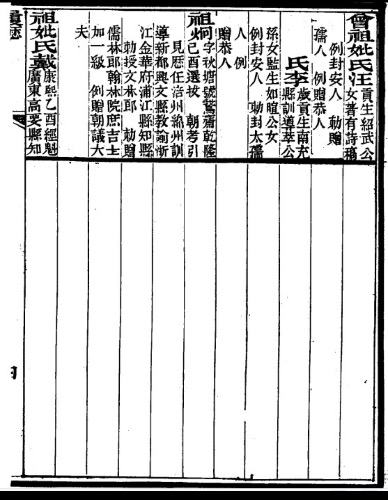 曾祖妣氏汪貢生紹武公
女著有詩稿
例封安人 勅贈
孺人 例贈恭人
氏李歲貢生南充
縣訓導萃公
孫女監生如暄公女
例封安人 勅封太孺
人 例
贈恭人
祖炯字秋塘號鷟齋乾隆
己酉選拔 朝考引
見歷任涪州綿州訓
導新都興文縣教諭浙
江金華府浦江縣知縣
勅授文林郎 勅贈
儒林郎翰林院庶吉士
加一級 例贈朝議大
夫
祖妣氏戴康熙乙酉經魁
廣東高要縣知